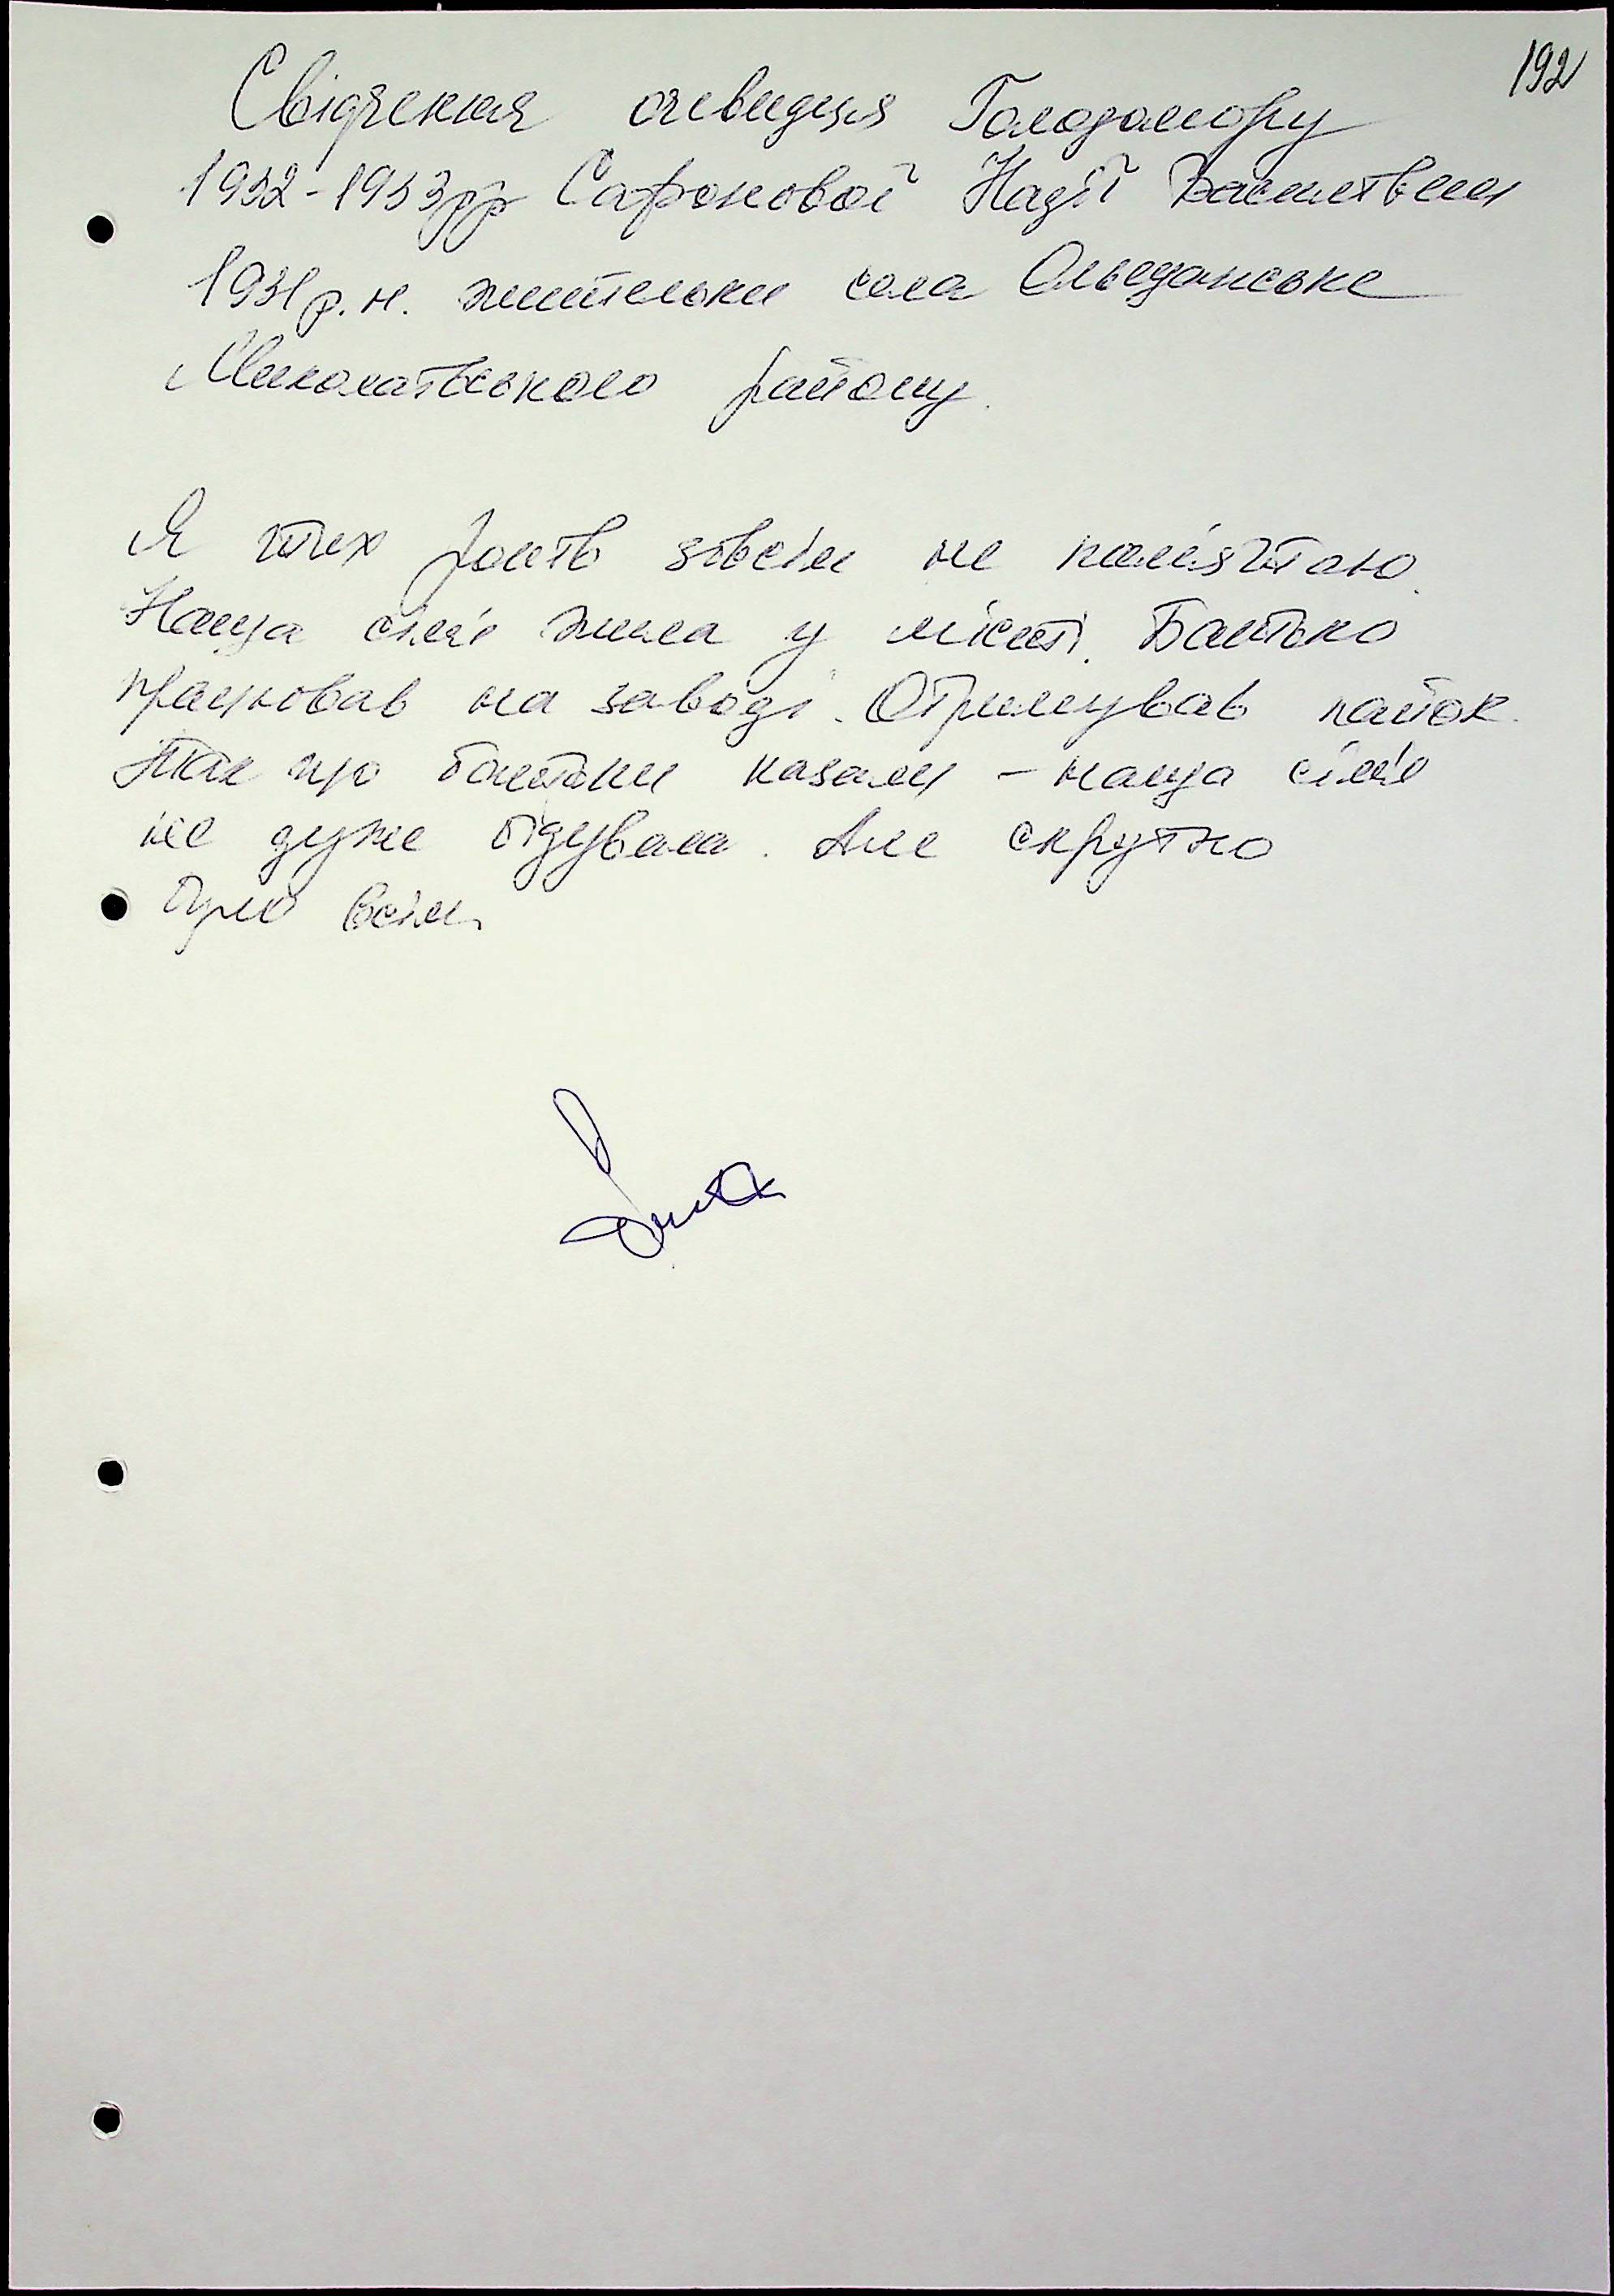 192
Свідчення очевидця Голодомору
1932-1933рр Сафонової Надії Василівни
1931 р.н. жительки села
Миколаївського району.
Я тих років зовсім не пам'ятаю.
Наша сім'я жила у місті. Батько
працював на заводі. Отримував пайок.
Так що батьки казали – наша сім'я
не дуже бідувала. Але скрутно
було всім.